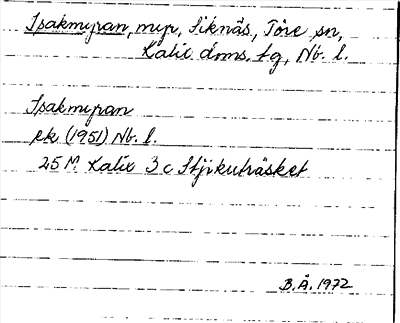 Isakmyran, myr, Siknäs, Töre sn,
Kalix doms. tg, Nb. l.
Isakmyran
ek. (1951) Nb. l.
25 M Kalix 3 c Stjikuträsket
B.Å. 1972